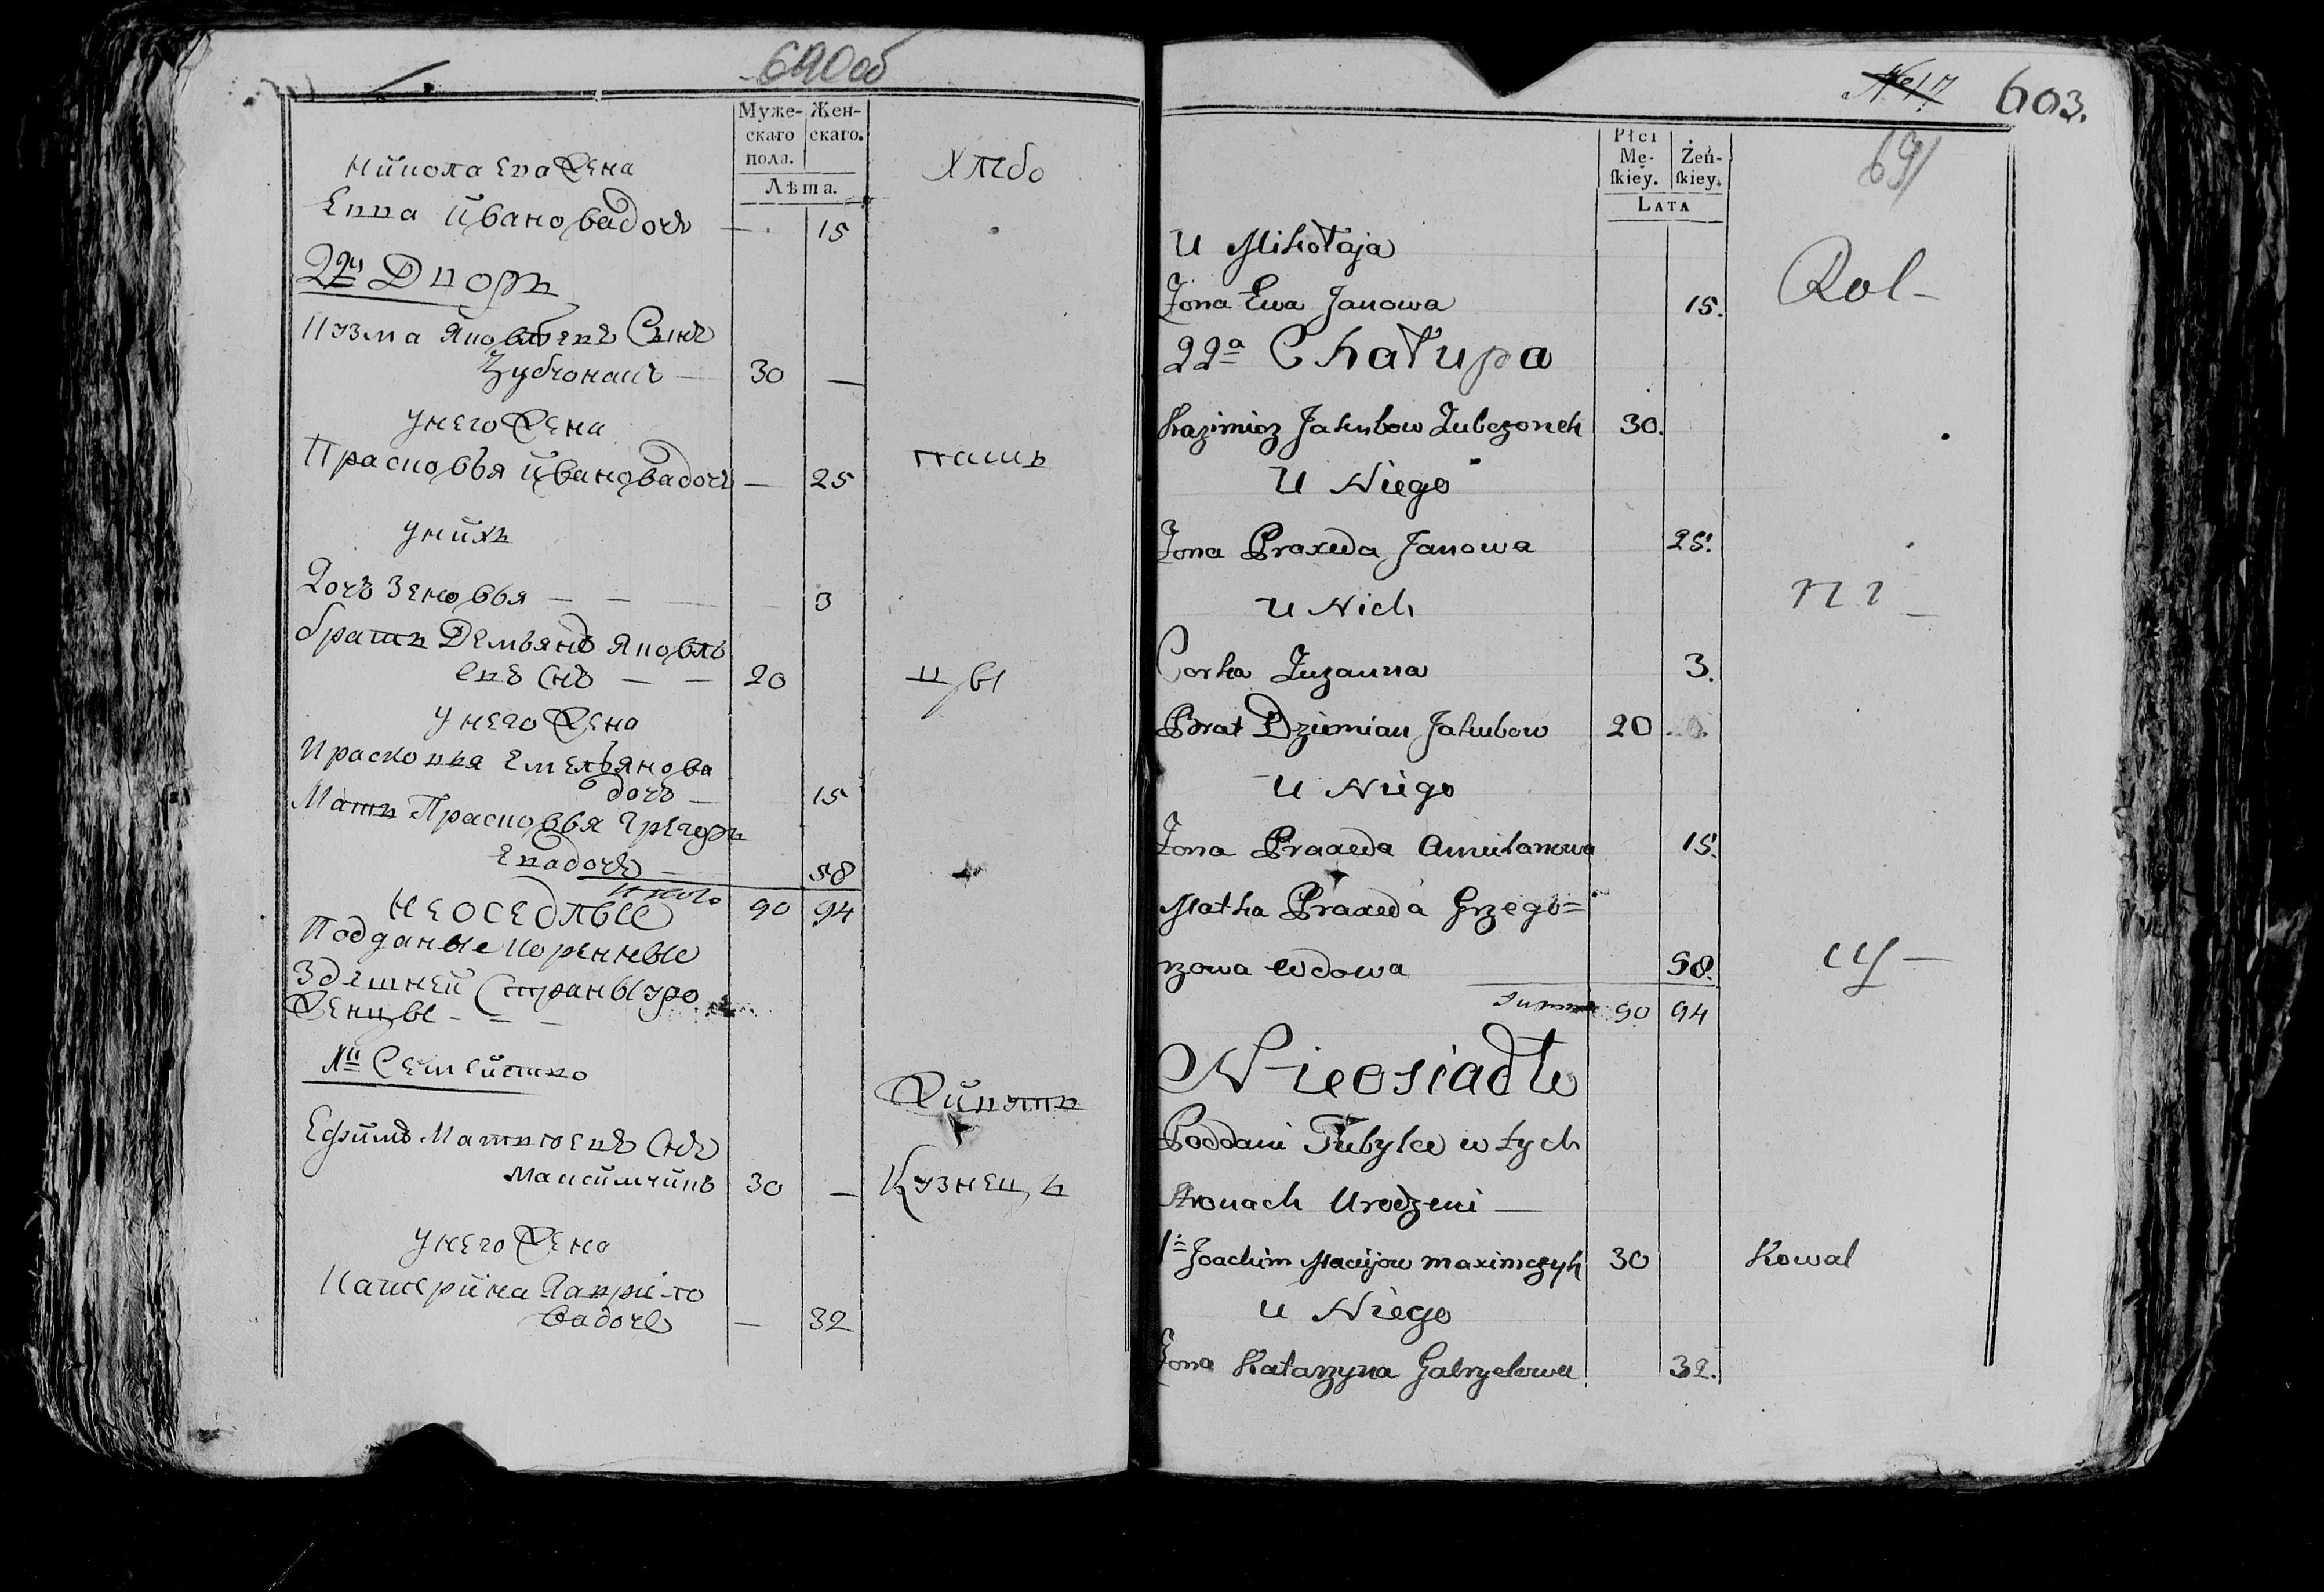 690об
Муже- Жен-
скаго скаго.
пола.
Лѣта.
Николаева жена
Евва Иванова дочь — 15
Хлебо
22й Дворъ
Кузма Яковлевъ Сынъ
Зубчонакъ — 30 —
у него жена
Прасковья Иванова дочь — 25
паш
у нихъ
Дочь Зеновья — — 3
братъ Демьянъ Яковль
евъ Снъ — — 20
цы
у него жена
Прасковья Емельянова
дочь — 15
Мать Прасковья Григорь
ева дочь — 58
Итого 90 94
Неоседлые
Подданые коренные
Здешней Страны уро
женцы — — —
1е Семейство
Ефимъ Матвеевъ Снъ
Максимчикъ 30 —
Кузнецъ
у него жена
Катерина Гаврилo
ва дочь — 32
№ 17 603.
691
Płci
Mę- Żeń-
skiey. skiey.
LATA
U Mikołaja
Żona Ewa Janowa 15.
Rol-
22a Chałupa
Kazimierz Jakubow Zubczonek 30.
U Niego
Żona Praxeda Janowa 25.
U Nich
ni —
Corka Zuzanna 3.
Brat Dziemian Jakubow 20
U Niego
Żona Praxeda Amilanowa 15.
Matka Praxeda Grzego=
rzowa wdowa 58.
cy —
Summa 90 94
Nieosiadłe
Poddani Tubylce w tych
Stronach Urodzeni —
1. Joachim Maciejow Maximczyk 30 Kowal
U Niego
Żona Katarzyna Gabryelowa 32.